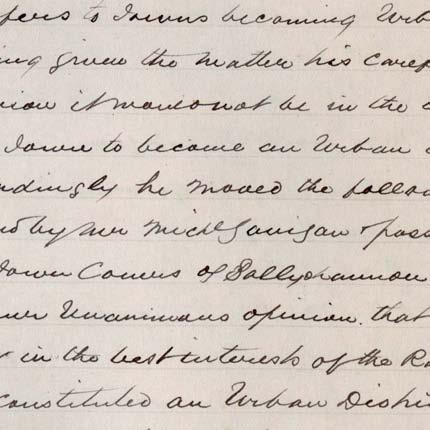 fers to Towns becoming Urb
ing given the matter his caref
nion it would not be in the
Town to become an Urban
rdingly he moved the follow
d by Mr Michl Gavigan & pass
Town Comrs of Ballyshannon
unanimous opinion that
in the best interests of the Ra
constituted an Urban Distri